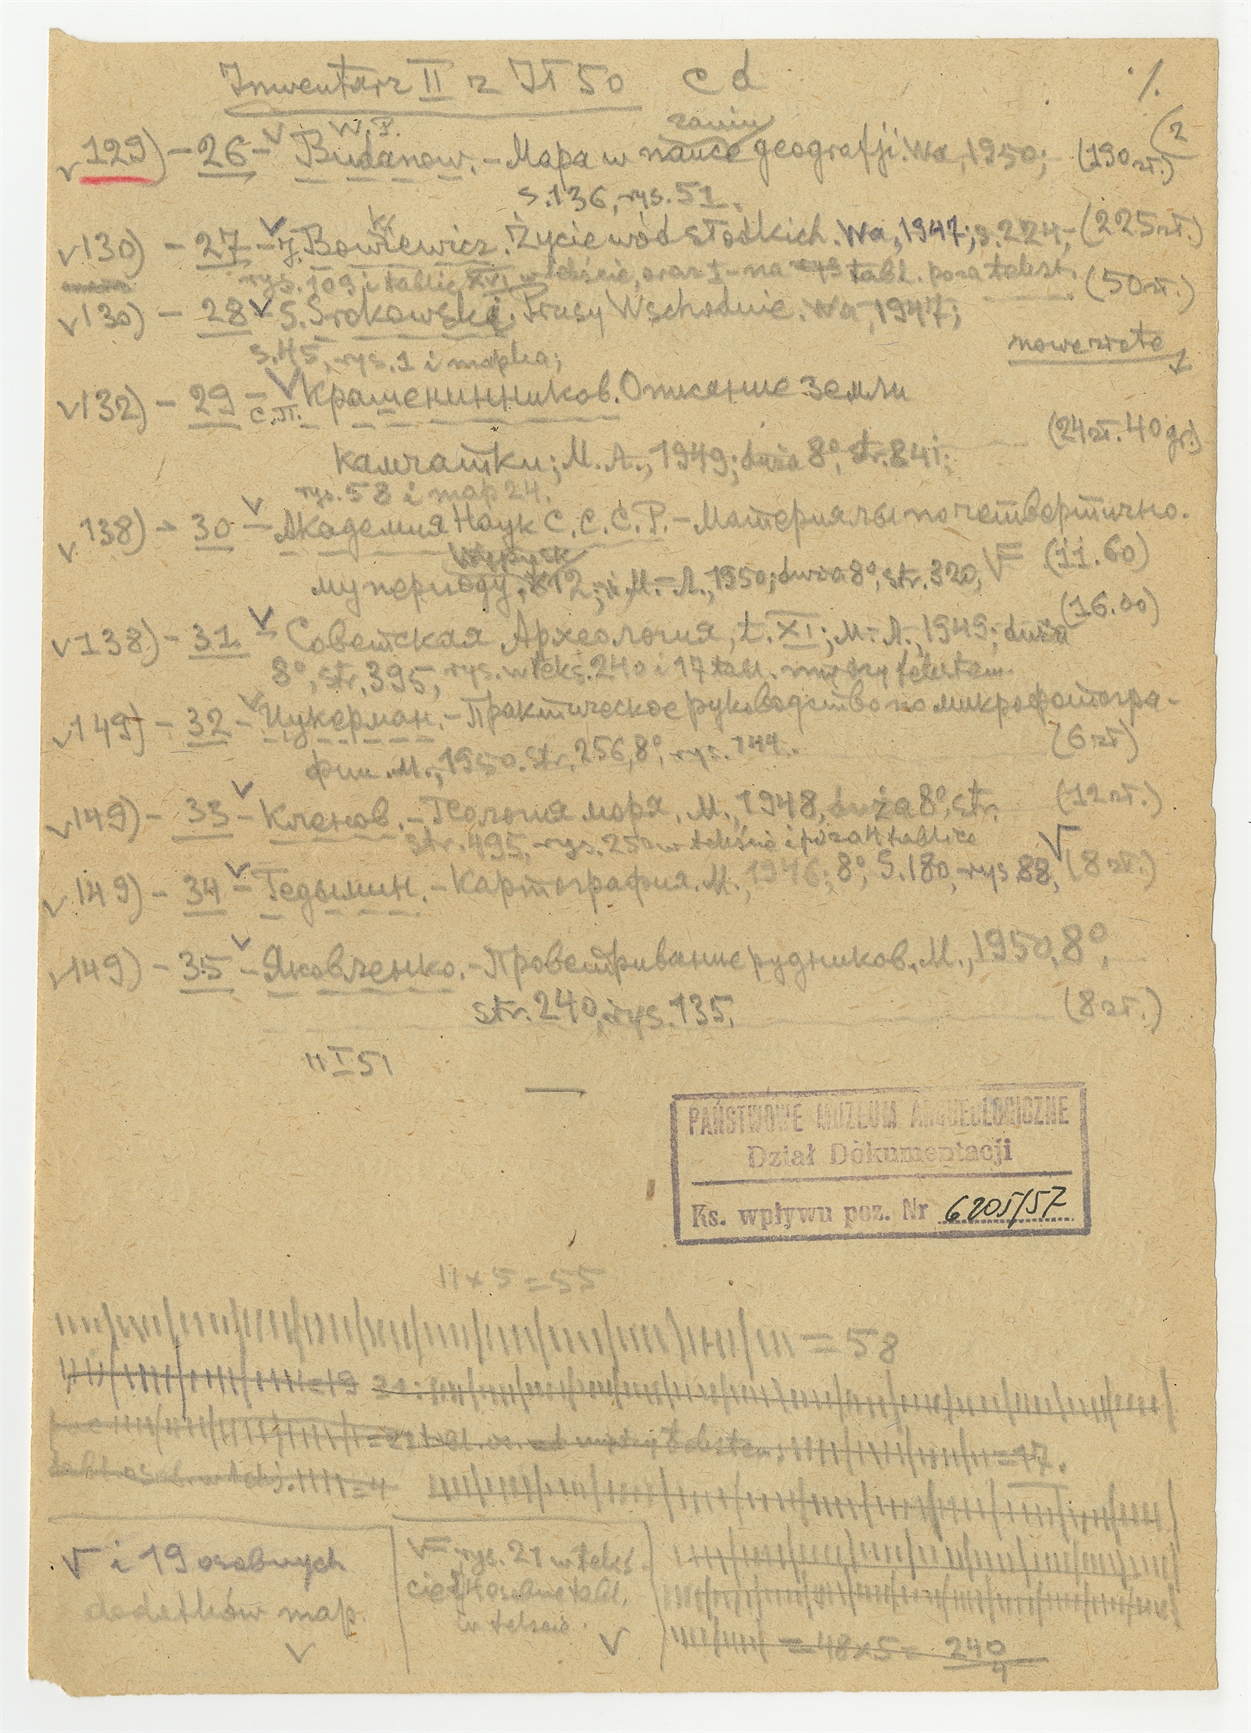 Inwentarz II z IT 50 cd ./.
(2
129) – 26 – W. P. Budanow. – Mapa w nauce geografji. Wa, 1950; (190 zł.)
s. 136, rys. 51.
130) – 27 – J. K. Bowkiewicz. Życie wód słodkich. Wa, 1947; s. 224; (225 zł.)
rys. 109 i tablic XVI w tekście, oraz 1 – na tabl. poza tekst.
130) – 28 – S. Srokowski. Prusy Wschodnie. Wa, 1947; (50 zł.)
s. 45, rys. 1 i mapka;
nowe złote
132) – 29 – С.П. Крашенинников. Описание земли
Камчатки; М. Л., 1949; duża 8°, str. 841; (24 zł. 40 gr.)
rys. 58 i map 24.
138) – 30 – Академия Наук С.С.С.Р. – Материялы по четвертично.
му периоду, Выпуск 2; М. – Л., 1950; duża 8°, str. 320, (11.60)
138) – 31 – Советская Археология, t. XI; М. – Л., 1949; duża (16.00)
8°, str. 395, rys. w teks. 240 i 17 tabl. między tekstem
149) – 32 – Цукерман. – Практическое руководство по микрофотогра-
фии. М., 1950. str. 256, 8°, rys. 144. (6 zł)
149) – 33 – Кленов. – Геология моря. М., 1948, duża 8°, str. (12 zł.)
str. 495, rys. 250 w tekście i poza 4 tablice
149) – 34 – Гедымин. – Картография. М., 1946; 8°, S. 180, rys 88, (8 zł.)
149) – 35 – Яковченко. – Проветривание рудников. М., 1950, 8°,
str. 240, rys. 135. (8 zł.)
11 I 51
PAŃSTWOWE MUZEUM ARCHEOLOGICZNE
Dział Dokumentacji
Ks. wpływu poz. Nr 6205/57
11 x 5 = 55
= 58
= 19 31:
= 21 tabl. os. między tekstem; = 17.
tabl. osob. w tekś. = 4
i 19 osobnych
dodatków map.
rys. 21 w tekś-
cie i 4 osobne tabl.
w tekście.
= 48 x 5 = 240